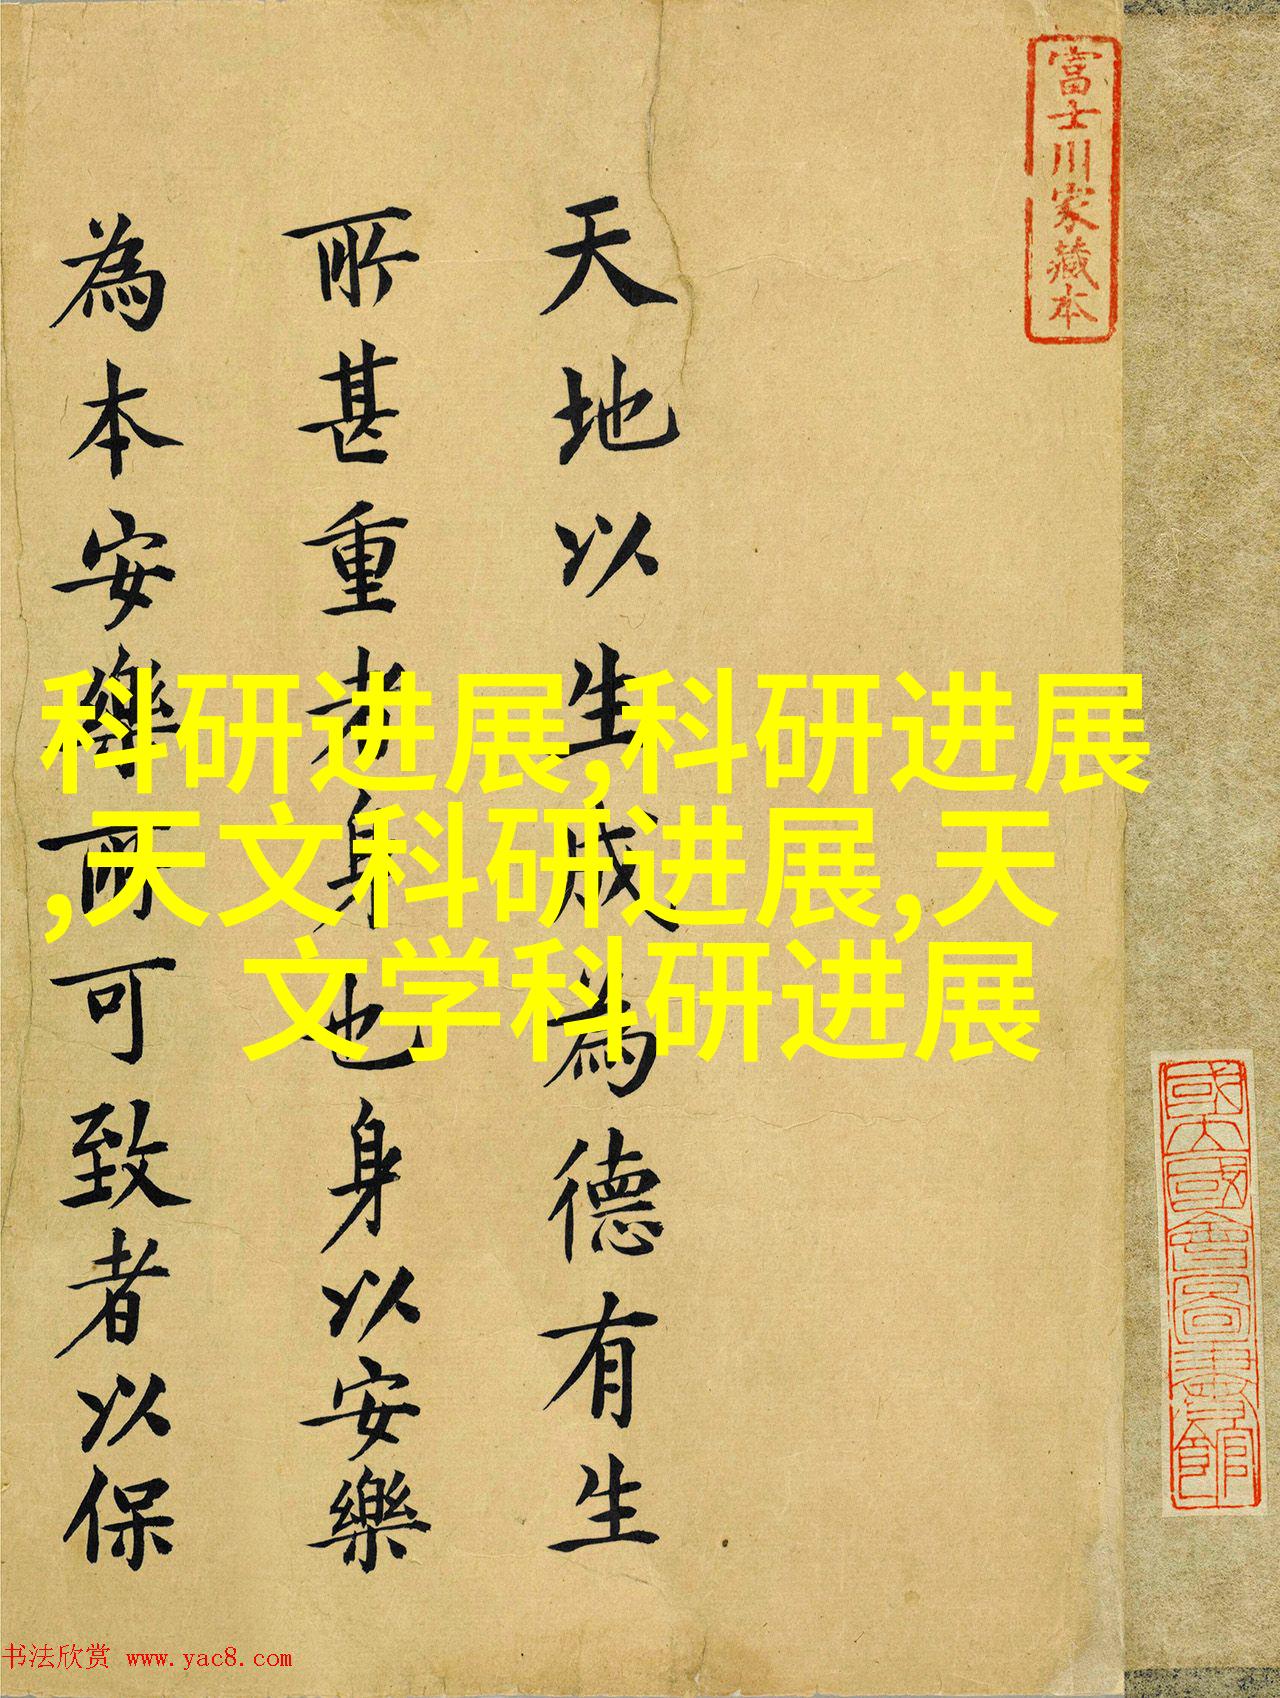 富士川家藏本
天地以生成為德有生
所甚重者身也身以安樂
為本安樂所可致者以保
科研进展,科研进展
,天文科研进展,天
文学科研进展
國立國會圖書館
书法欣赏 www.yac8.com